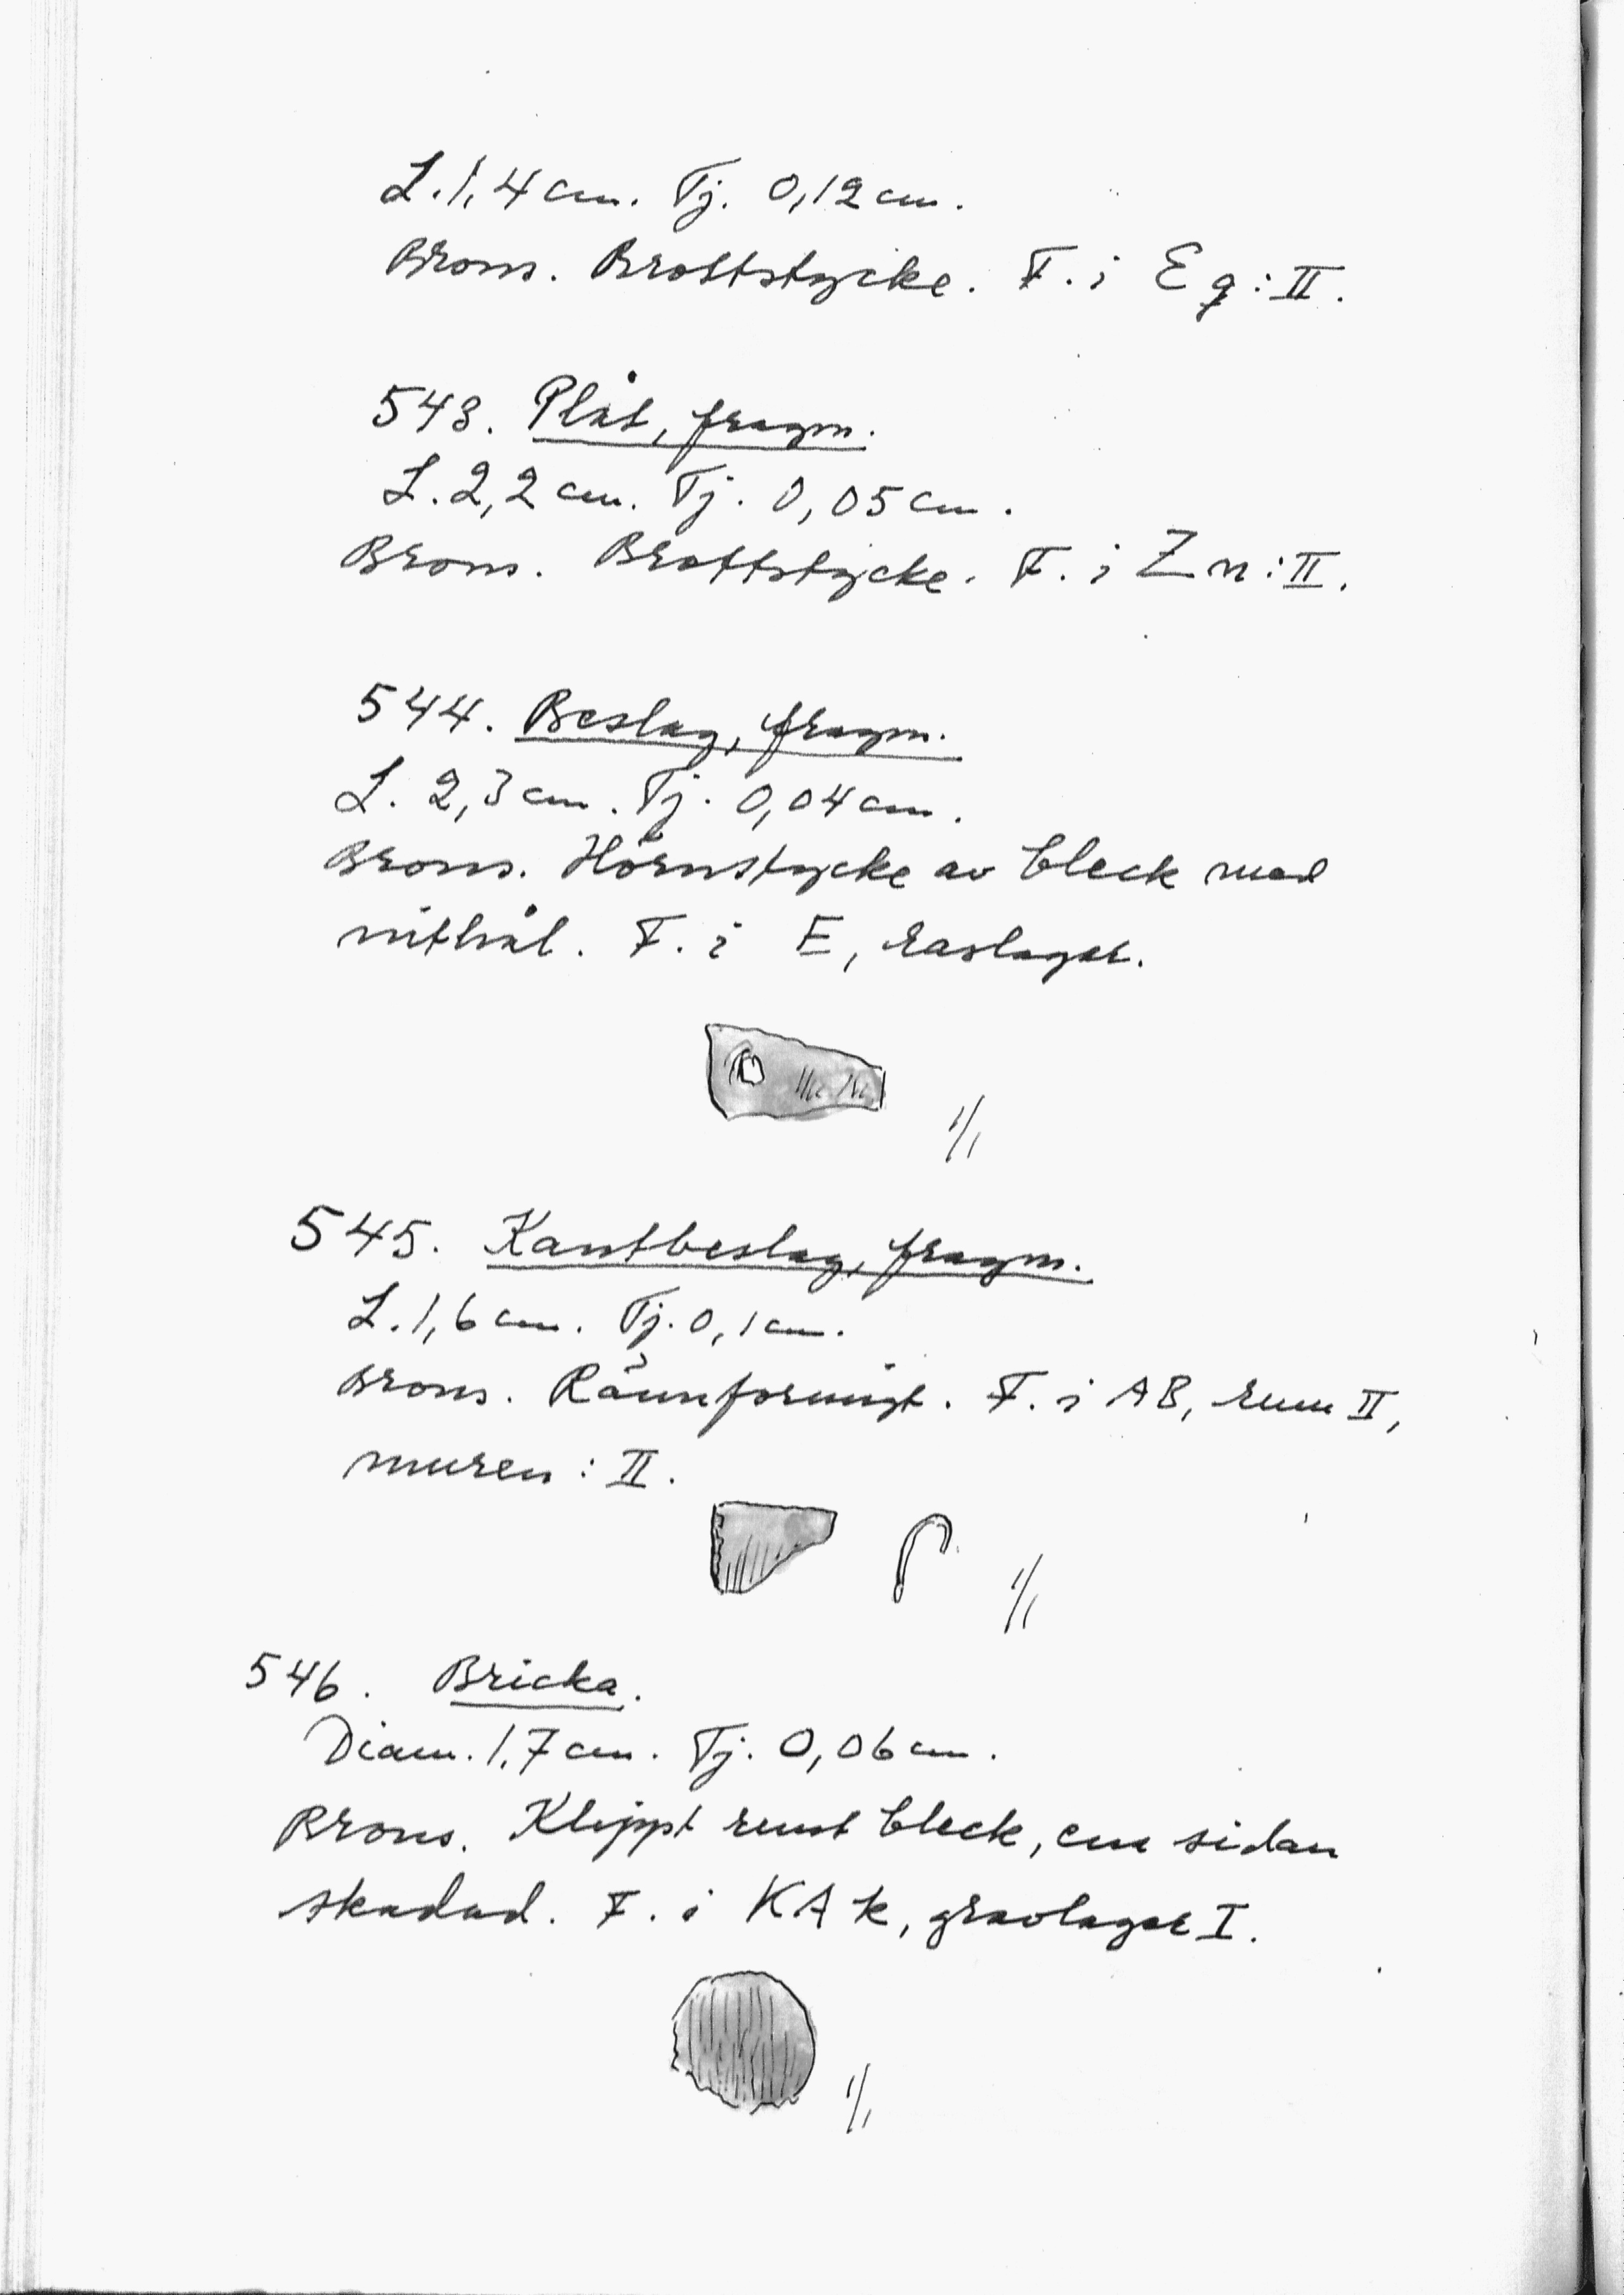 L. 1,4 cm. Tj. 0,12 cm.
Brons. Brottstycke. F. i Eq:II.
543. Plåt, fragm.
L. 2,2 cm. Tj. 0,05 cm.
Brons. Brottstycke. F. i Zn:II.
544. Beslag, fragm.
L. 2,3 cm. Tj. 0,04 cm.
Brons. Hörnstycke av bleck med
nithål. F. i E, raslager.
1/1
545. Kantbeslag, fragm.
L. 1,6 cm. Tj. 0,1 cm.
Brons. Rännformigt. F. i AB, rum II,
muren: II.
1/1
546. Bricka.
Diam. 1,7 cm. Tj. 0,06 cm.
Brons. Klippt runt bleck, ena sidan
skadad. F. i KAk, gravlager I.
1/1